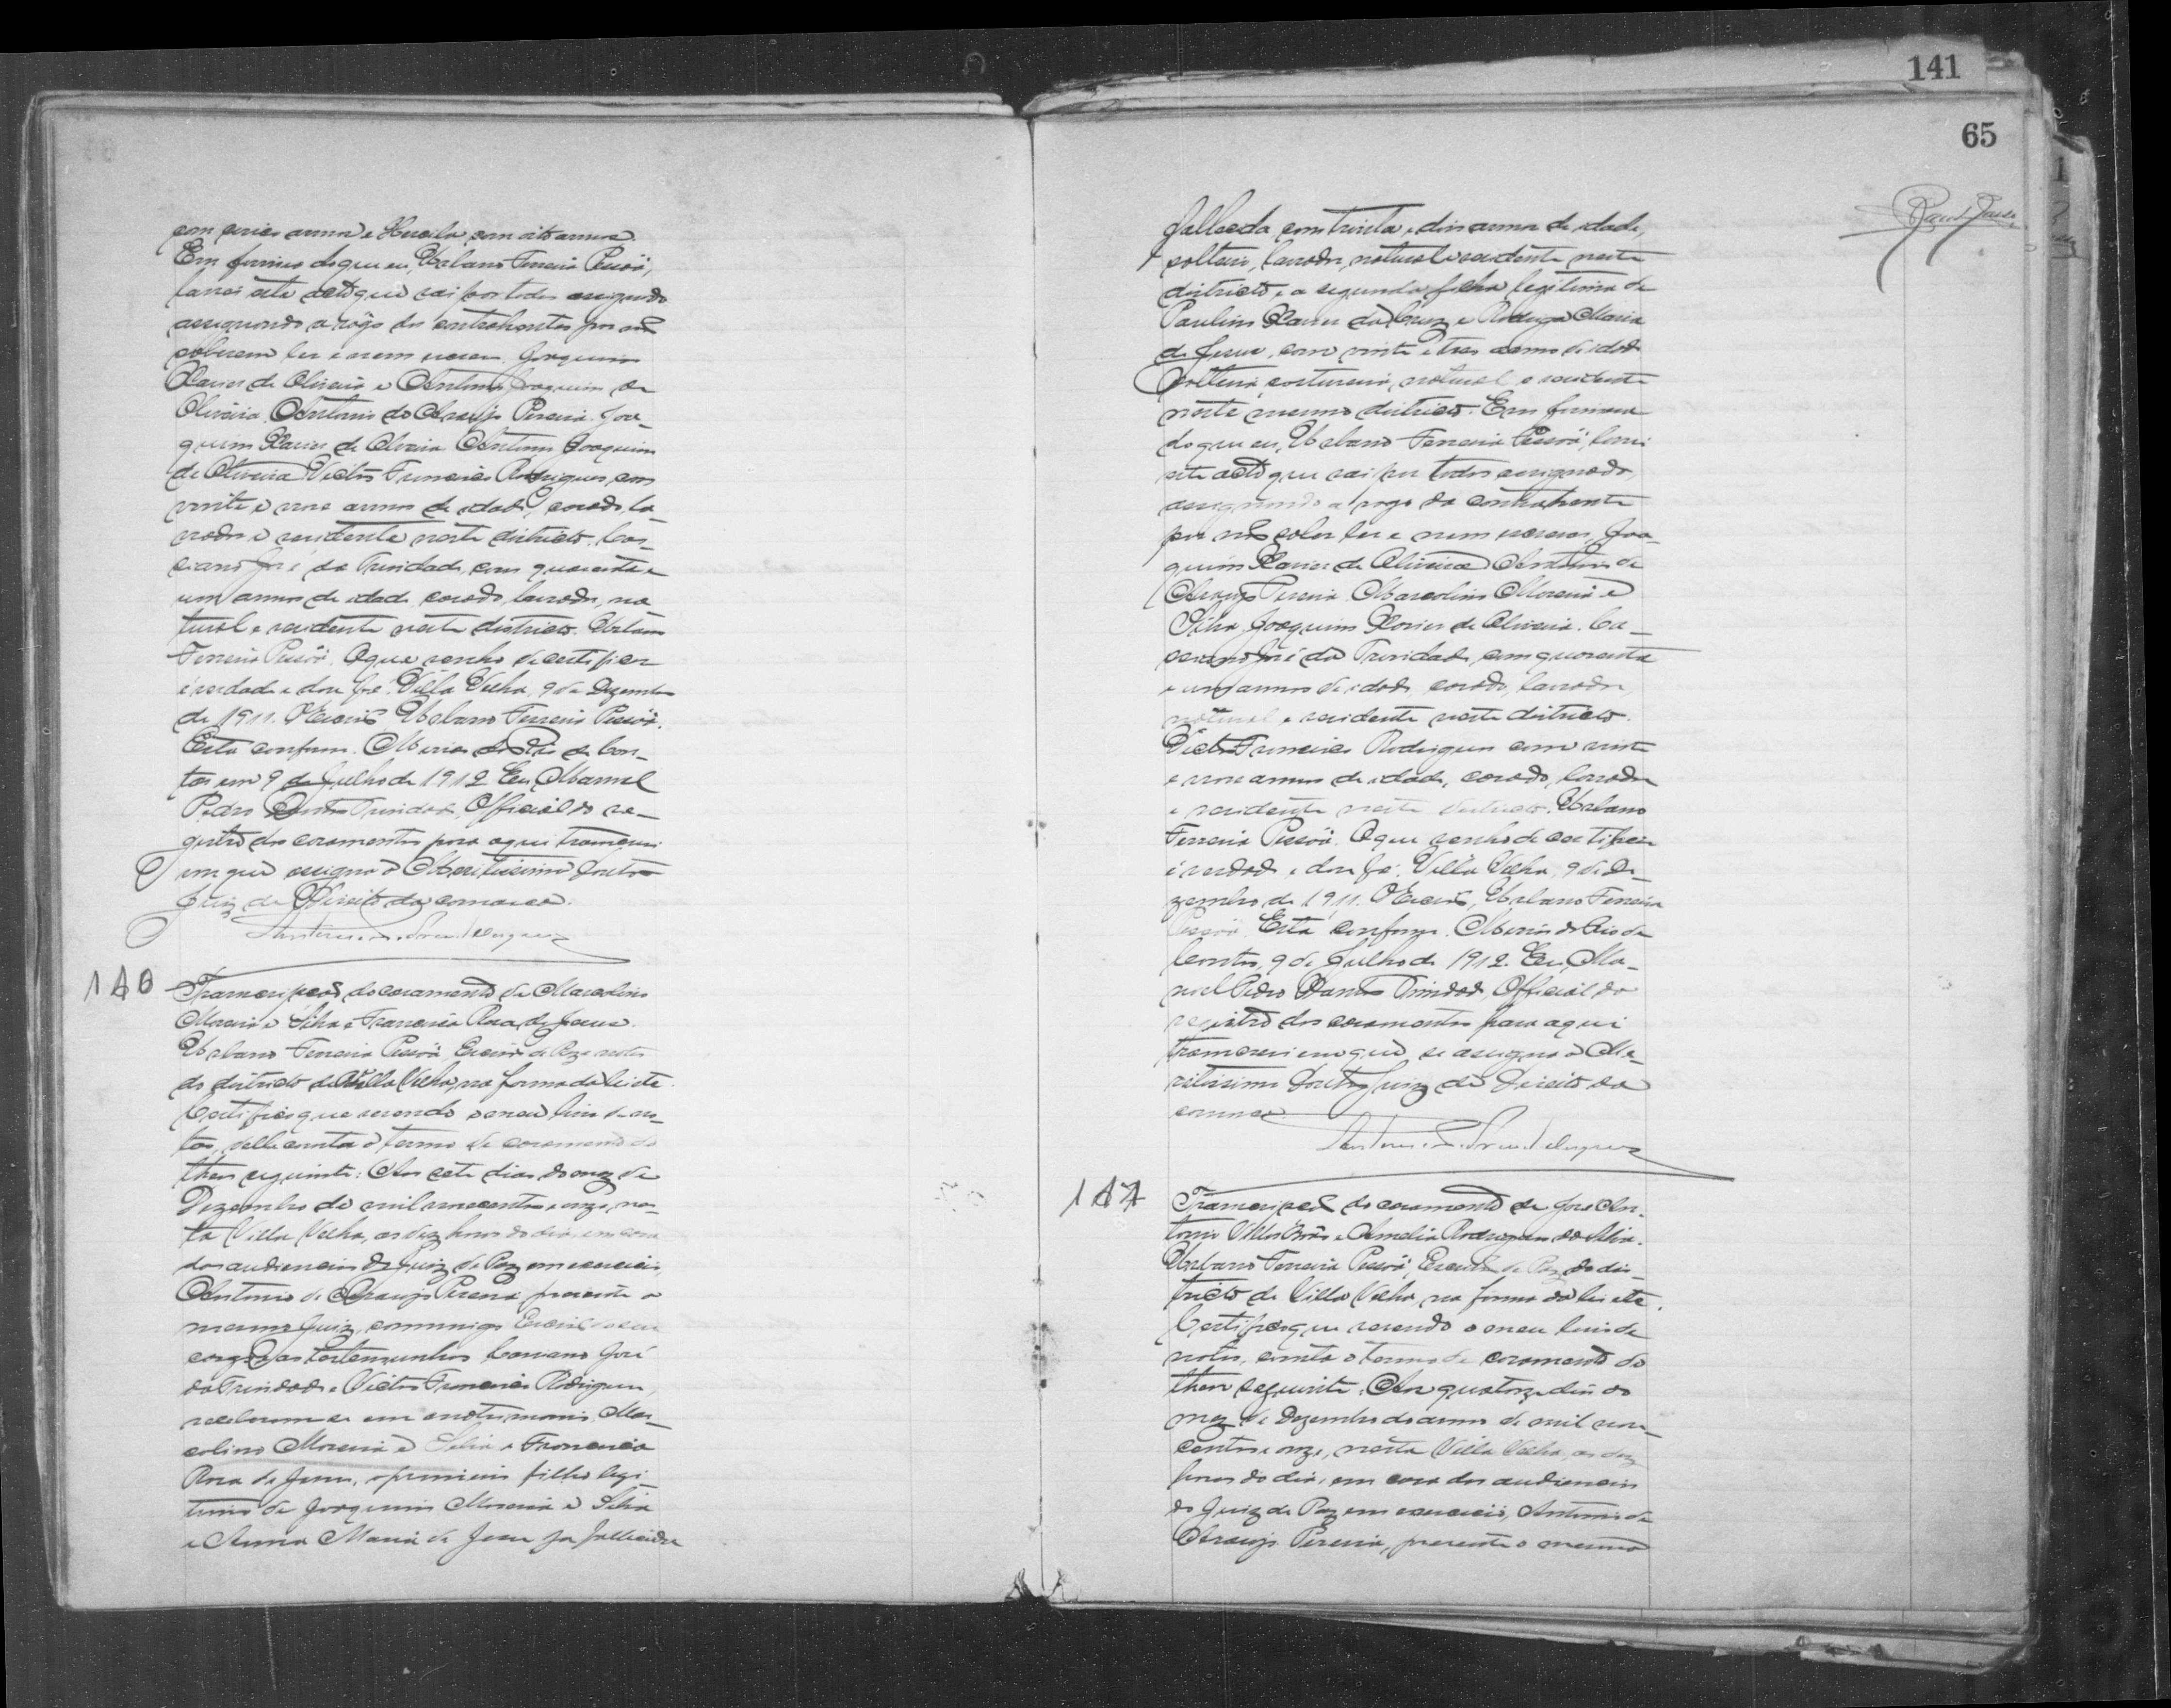 com cinco annos e Hercila com oito annos.
Em firmesa do que eu, Urbano Ferreira Pessôa,
lavrei este acto que vai por todos assignado
assignando a rôgo dos contrahentes por não
soberem ler e nem escrever, Joaquim
Xavier de Oliveira e Antonio Joaquim de
Oliveira. Antonio de Araujo Pereira. Joa-
quim Xavier de Oliveira Antonio Joaquim
de Oliveira Victor Francisco Rodrigues, com
vinte e nove annos de idade, casado, la-
vrador e residente neste districto. Cas-
ciano José da Trindade, com quarenta e
um annos de idade casado, lavrador, na
tural e residente neste districto. Urbano
Ferreira Pessôa. O que venho de certificar
é verdade e dou fé. Villa Velha, 9 de Dezembro
de 1911. O Escrivão Urbano Ferreira Pessôa.
Está conforme. Minas do Rio de Con-
tas em 9 de Julho de 1912 Eu, Manoel
Pedro Dantas Trindade, Official do re-
gistro dos casamentos para aqui transcrevi
em que assigna o Meritissimo Doutor
Juiz de Direito da comarca.
146
Transcripção do casamento de Marcolino
Moreira e Silva e Francisca Rosa de Jesus.
Urbano Ferreira Pessôa, Escrivão de Paz e notas
do districto de Villa Velha, na forma da lei ete.
Certifico que revendo o meu livro de no-
tas, nelle consta o termo de casamento do
theor seguinte: Aos sete dias do mez de
Dezembro de mil novecentos e onze, nes-
ta Villa Velha, as dez horas do dia, em casa
das audiencias do Juiz de Paz em exercicio,
Antonio de Araujo Pereira presente o
mesmo Juiz, commigo Escrivão de seu
cargo e as testemunhas Casciano José
da Trindade e Victor Francisco Rodrigues,
receberam-se em matrimonio Mar-
colino Moreira e Silva e Francisca
Rosa de Jesus, o primeiro filho legi-
timo de Joaquim Moreira e Silva
e Anna Maria de Jesus ja fallecida
141
65
fallecida com trinta e dois annos de idade,
solteiro, lavrador, natural e residente neste
districto, e a segunda filha legitima de
Paulino Xavier da Cruz e Rodriga Maria
de Jesus, com vinte e tres annos de idade
solteira, costureira, natural e residente
neste mesmo districto. Em firmesa
do que eu, Urbano Ferreira Pessôa, lavrei
este acto que vai por todos assignado,
assignando a rogo da contrahente
por não saber ler e nem escrever, Joa-
quim Xavier de Oliveira Antonio de
Araujo Pereira. Marcolino Moreira e
Silva Joaquim Xavier de Oliveira. Ca-
sciano José da Trindade, com quarenta
e um annos de idade, casado, lavrador,
natural e residente neste districto.
Victor Francisco Rodrigues com vinte
e nove annos de idade, casado, lavrador
e residente neste districto. Urbano
Ferreira Pessôa. O que venho de certificar
é verdade e dou fé. Villa Velha, 9 de De-
zembro de 1911. O Escrivão, Urbano Ferreira
Pessôa Está conforme. Minas do Rio de
Contas, 9 de Julho de 1912. Eu, Ma-
noel Pedro Dantas Trindade, Official do
registro dos casamentos para aqui
transcrevi em que se assigna o Me-
ritissimo Doutor Juiz de Direito da
comarca
147
Transcripção do casamento de José An-
tonio Villas Bôas e Amelia Rodrigues da Silva.
Urbano Ferreira Pessôa, Escrivão de Paz do dis-
tricto de Villa Velha, na forma da lei ete.
Certifico que revendo o meu livro de
notas, consta o termo de casamento do
theor seguinte: Aos quatorze dias do
mez de Dezembro do anno de mil nove-
centos e onze, nesta Villa Velha, as dez
horas do dia, em casa das audiencias
do Juiz de Paz em exercicio, Antonio de
Araujo Pereira, presente o mesmo